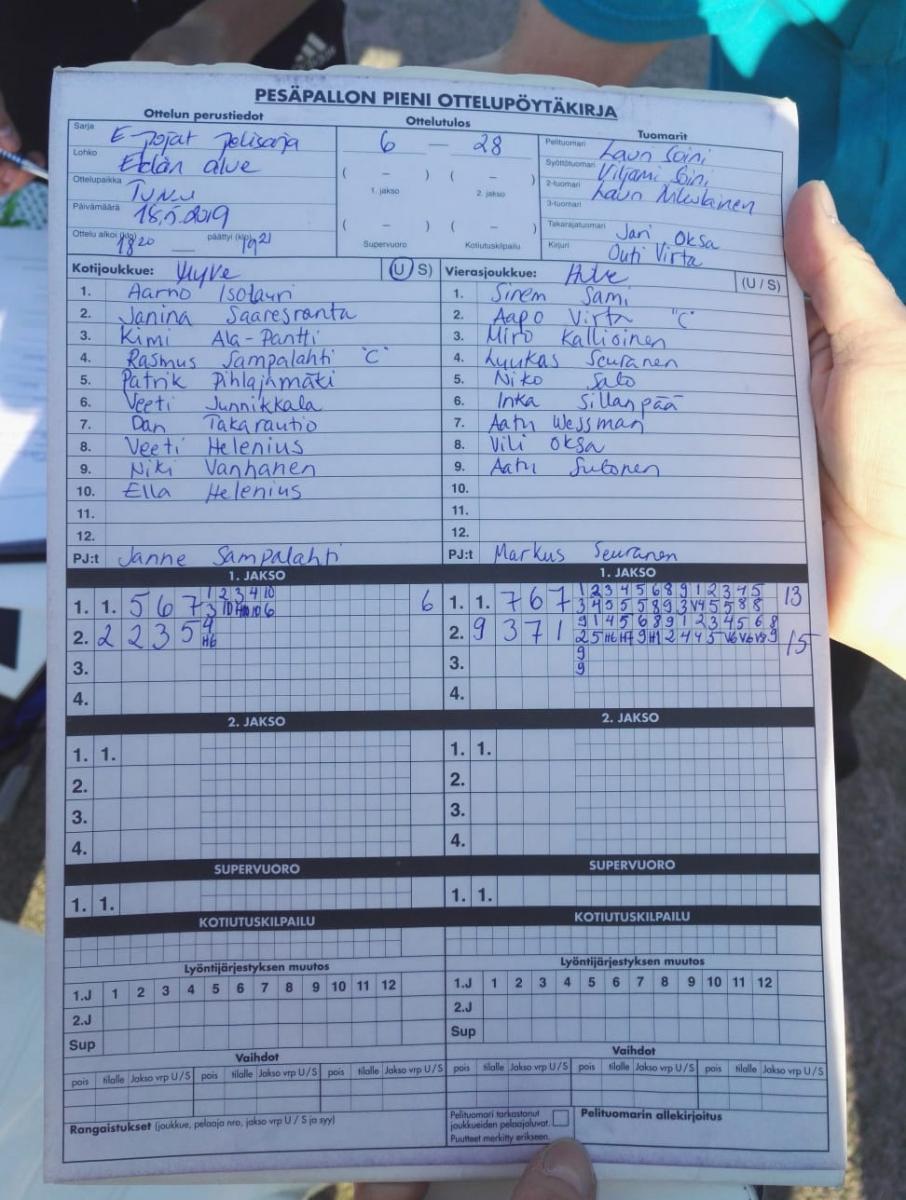 PESÄPALLON PIENI OTTELUPÖYTÄKIRJA
Ottelun perustiedot
Sarja E-pojat pelisarja
Lohko Etelän alue
Ottelupaikka Turku
Päivämäärä 18.5.2019
Ottelu alkoi (klo) 1820 päättyi (klo) 1921
Ottelutulos
6 — 28
( – ) ( – )
1. jakso 2. jakso
( – ) ( – )
Supervuoro Kotiutuskilpailu
Tuomarit
Pelituomari Lauri Soini
Syöttötuomari Viljami Soini
2-tuomari Lauri
3-tuomari
Takarajatuomari Jari Oksa
Kirjuri Outi Virta
Kotijoukkue: (U / S)
1. Aarno Isotauri
2. Janina Saaresranta
3. Kimi Ala-Pantti
4. Rasmus Sampalahti "C"
5. Patrik Pihlajamäki
6. Veeti Junnikkala
7. Dan Takarautio
8. Veeti Helenius
9. Niki Vanhanen
10. Ella Helenius
11.
12.
PJ:t Janne Sampalahti
Vierasjoukkue: (U / S)
1. Sirem Sami
2. Aapo Virta "C"
3. Miro Kallioinen
4. Lyukas Seuranen
5. Niko Salo
6. Inka Sillanpää
7. Aatu Wessman
8. Vili Oksa
9. Aatu Sutonen
10.
11.
12.
PJ:t Markus Seuranen
1. JAKSO
1. 1. 5 6 7 1 2 3 4 10 6
2. 2 2 3 5 4 H6
3.
4.
1. JAKSO
1. 1. 7 6 7 1 2 3 4 5 6 8 9 1 2 3 4 5 13
3 4 5 5 5 8 9 3 V4 5 5 8 8
2. 9 3 7 1 9 1 4 5 6 8 9 1 2 3 4 5 6 8 15
2 5 H6 H7 9 H1 2 4 4 5 V6 V6 V8 9
3. 9
9
4.
2. JAKSO
1. 1.
2.
3.
4.
2. JAKSO
1. 1.
2.
3.
4.
SUPERVUORO
1. 1.
SUPERVUORO
1. 1.
KOTIUTUSKILPAILU
KOTIUTUSKILPAILU
Lyöntijärjestyksen muutos
1.J 1 2 3 4 5 6 7 8 9 10 11 12
2.J
Sup
Lyöntijärjestyksen muutos
1.J 1 2 3 4 5 6 7 8 9 10 11 12
2.J
Sup
Vaihdot
pois tilalle Jakso vrp U/S pois tilalle Jakso vrp U/S pois tilalle Jakso vrp U/S
Vaihdot
pois tilalle Jakso vrp U/S pois tilalle Jakso vrp U/S pois tilalle Jakso vrp U/S
Rangaistukset (joukkue, pelaaja nro, jakso vrp U / S ja syy)
Pelituomari tarkastanut
joukkueiden pelaajaluvat.
Puutteet merkitty erikseen.
Pelituomarin allekirjoitus
adidas